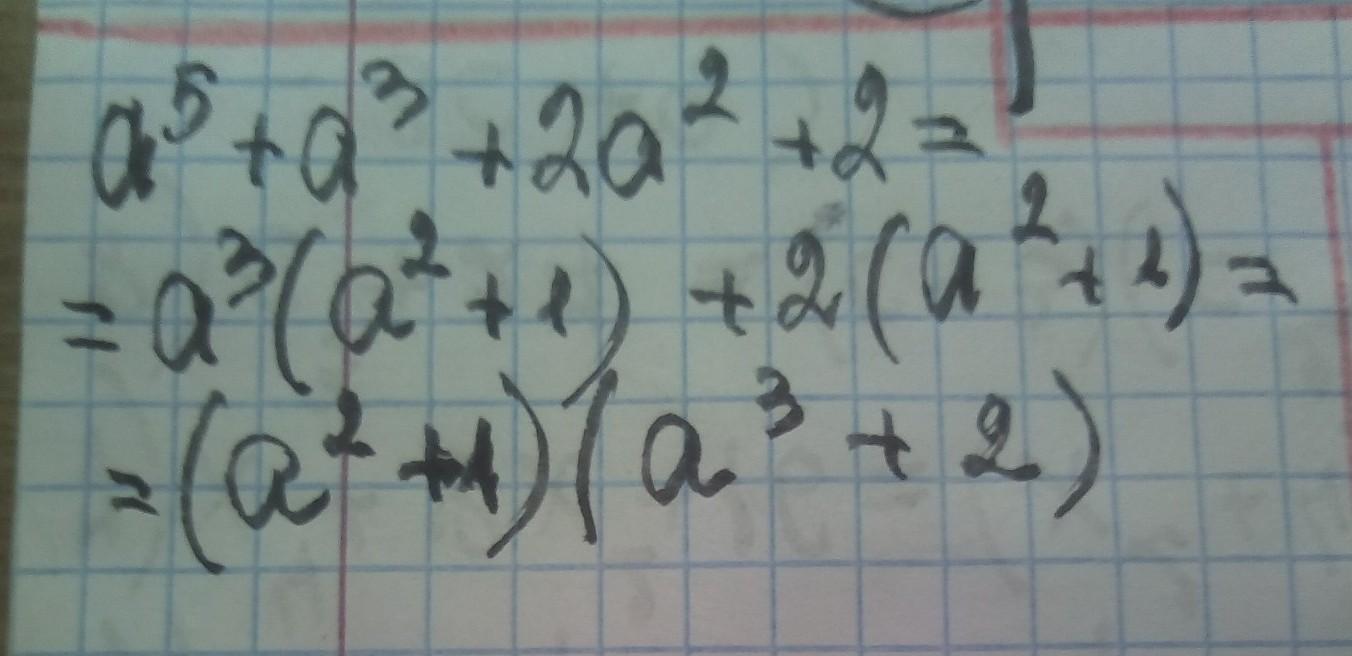 a⁵ + a³ + 2a² + 2 =
= a³(a² + 1) + 2(a² + 1) =
= (a² + 1)(a³ + 2)